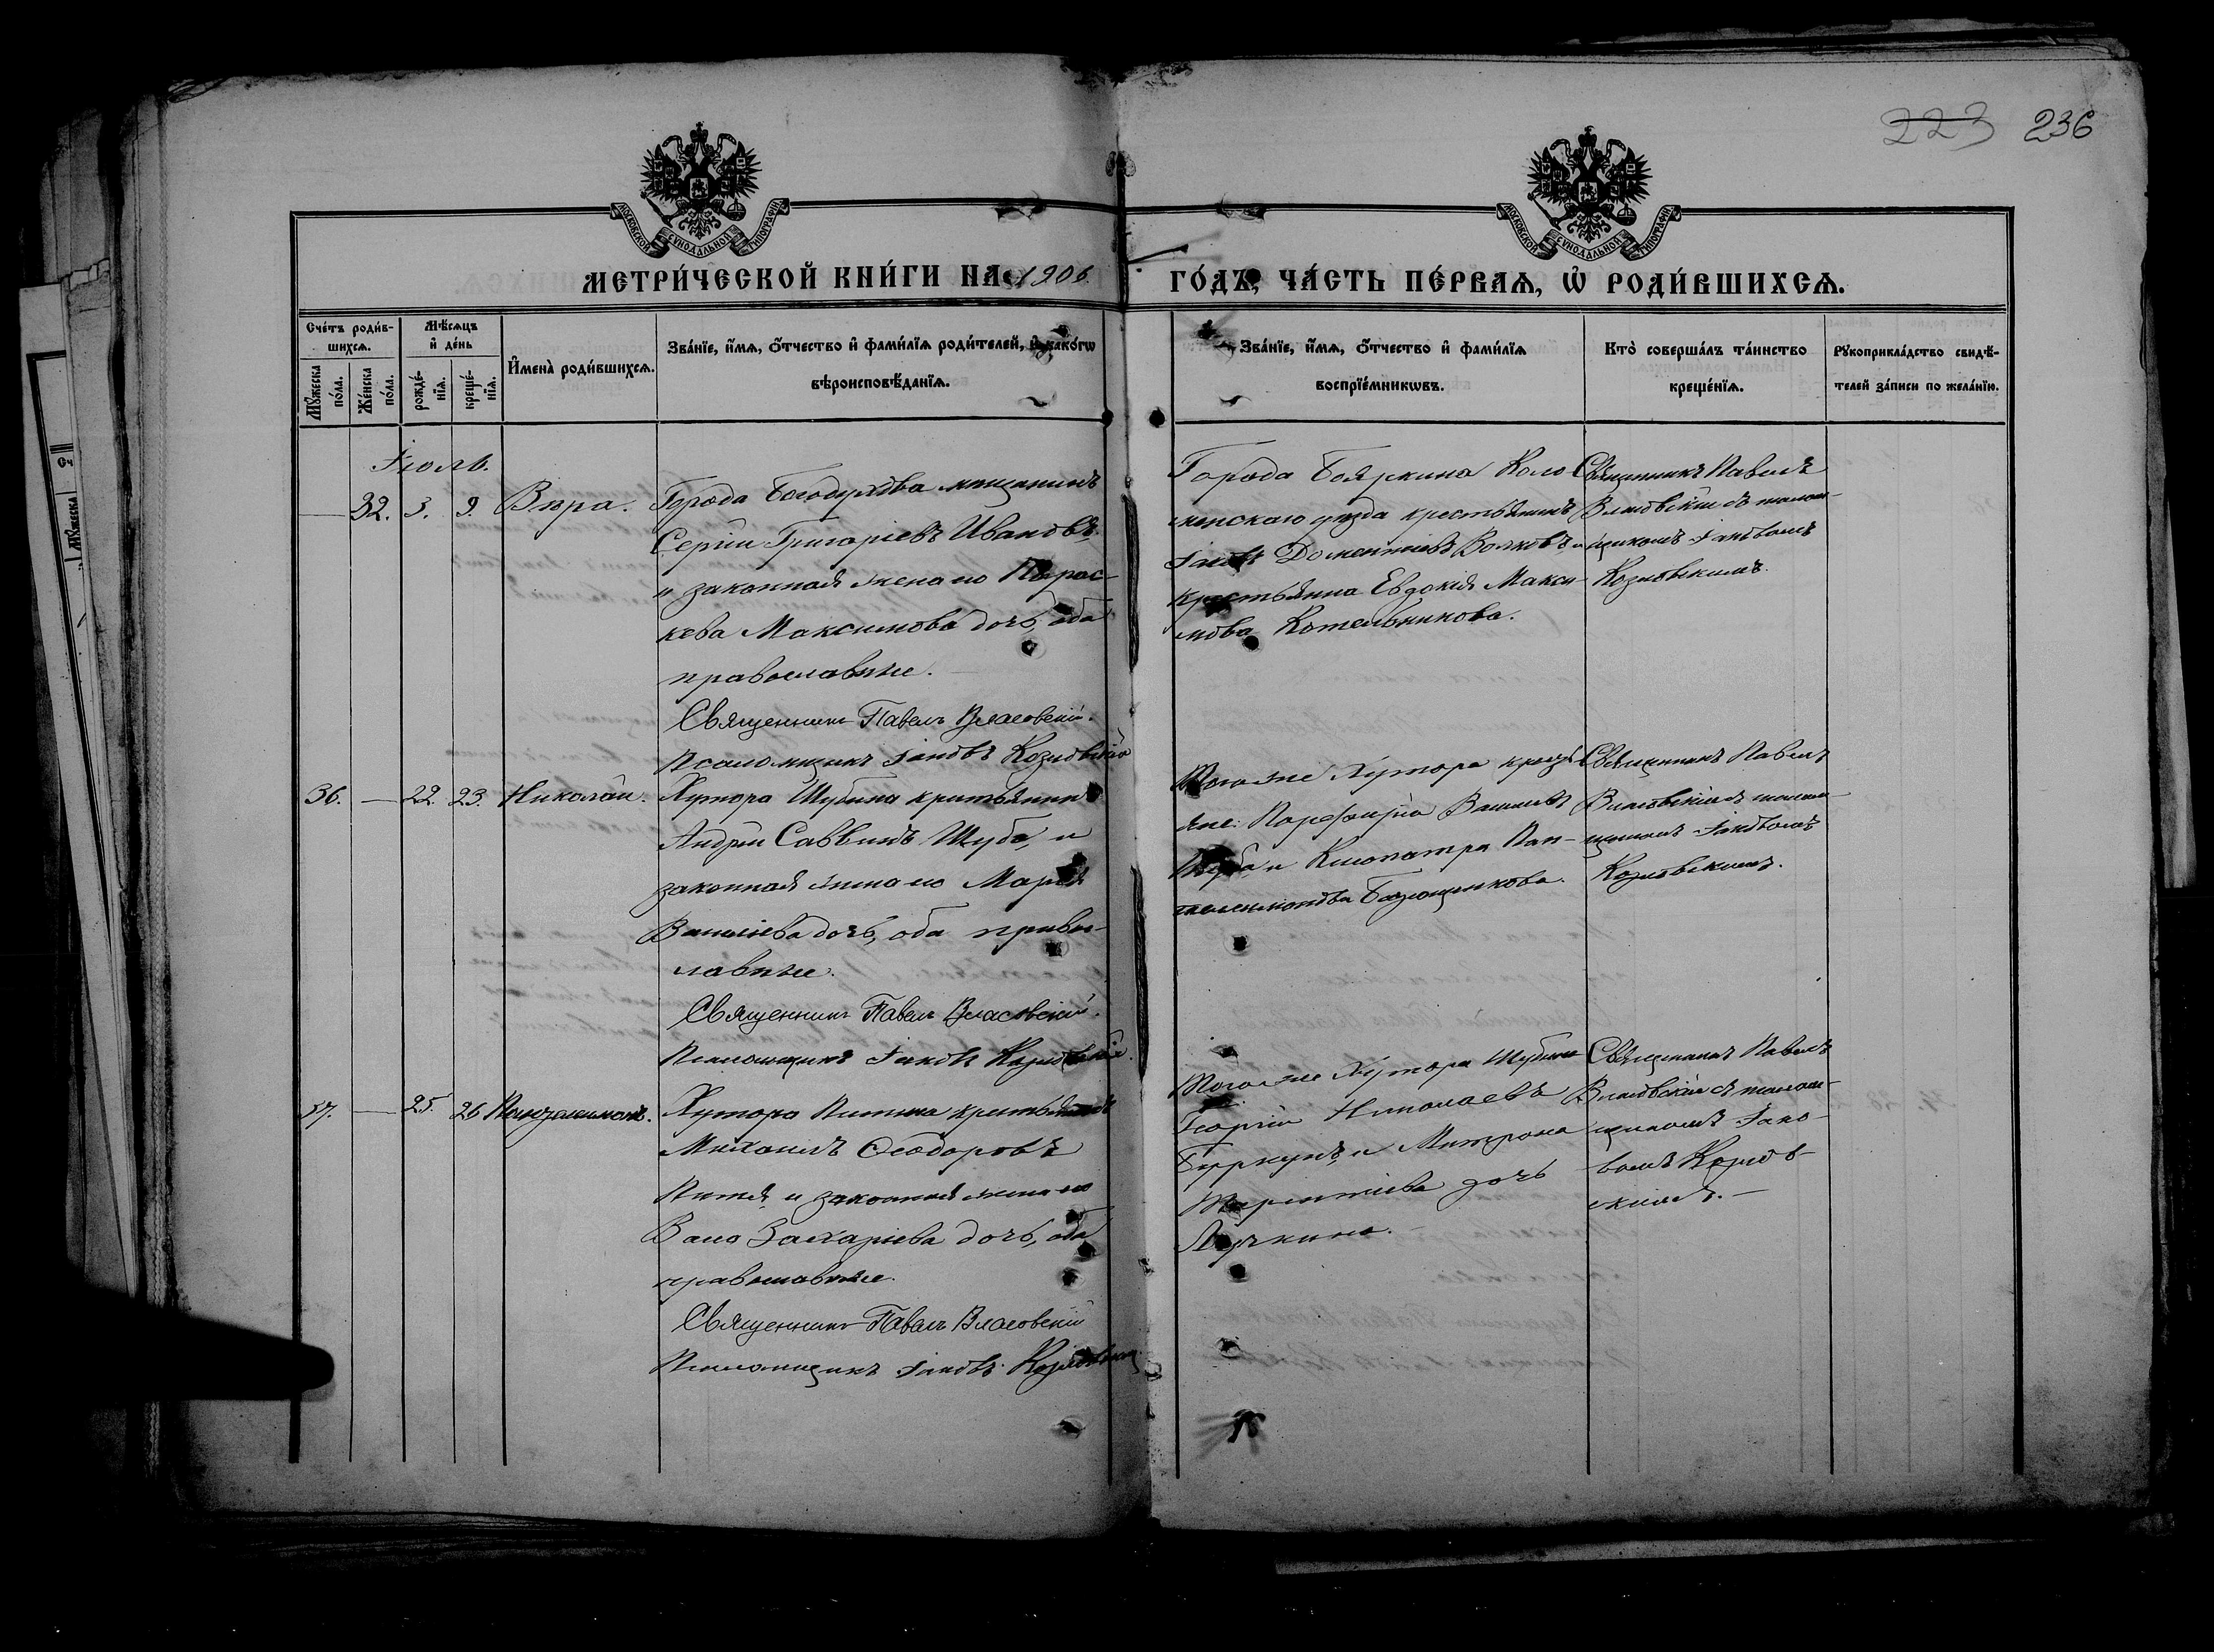 223 236
МОСКОВСКОЙ СУНОДАЛЬНОЙ ТИПОГРАФІИ
МОСКОВСКОЙ СУНОДАЛЬНОЙ ТИПОГРАФІИ
МЕТРИ́ЧЕСКОЙ КНИ́ГИ НА 1906.
ГО́ДЪ, ЧА́СТЬ ПЕ́РВАѦ, Ѡ РОДИ́ВШИХСѦ.
Сче́тъ роди́в-
шихсѧ.
Мꙋ́жеска
по́ла.
Же́нска
по́ла.
Мѣ́сѧцъ
и҆ де́нь
рожде́-
нїѧ.
креще́-
нїѧ.
И҆мена̀ роди́вшихсѧ.
Зва́нїе, и҆́мѧ, ѻ҆́тчество и҆ фами́лїѧ роди́телей, и҆ како́гѡ
вѣроисповѣ́данїѧ.
Зва́нїе, и҆́мѧ, ѻ҆́тчество и҆ фами́лїѧ
воспрїе́мникѡвъ.
Кто̀ соверша́лъ та́инство
креще́нїѧ.
Рꙋкоприкла́дство свидѣ́-
телей за́писи по жела́нїю.
Іюль.
— 32. 3. 9. Вѣра.
Города Богодухова мѣщанинъ
Сергій Григоріевъ Ивановъ,
и законная жена его Парас-
кева Максимова дочь, оба
православные.
Священникъ Павелъ Власовскій.
Псаломщикъ Іаковъ Козловскій
Города Бояркина Коло-
менскаго уѣзда крестьянинъ
Іаковъ Дометіевъ Волковъ, и
крестьянка Евдокія Макси-
мова Котельникова.
Священникъ Павелъ
Власовскій съ псалом-
щикомъ Іаковомъ
Козловскимъ.
36. — 22. 23. Николай.
Хутора Шубина крестьянинъ
Андрей Саввинъ Шуба, и
законная жена его Марія
Васильева дочь, оба правос-
лавные.
Священникъ Павелъ Власовскій.
Псаломщикъ Іаковъ Козловскій.
Того же Хутора крестья-
яне: Порфирій Васильевъ
Шуба и Клеопатра Пан-
телеимонова
Священникъ Павелъ
Власовскій съ псалом-
щикомъ Іаковомъ
Козловскимъ.
37. — 25. 26 Пантелеимонъ.
Хутора крестьянинъ
Михаилъ Ѳеодоровъ
и законная жена его
Захаріева дочь, оба
православные.
Священникъ Павелъ Власовскій
Псаломщикъ Іаковъ Козловскій
Того же Хутора Шубина
Георгій Николаевъ
и Матрона
Терентіева дочь
Священникъ Павелъ
Власовскій съ псалом-
щикомъ Іако-
вомъ Козлов-
скимъ. —